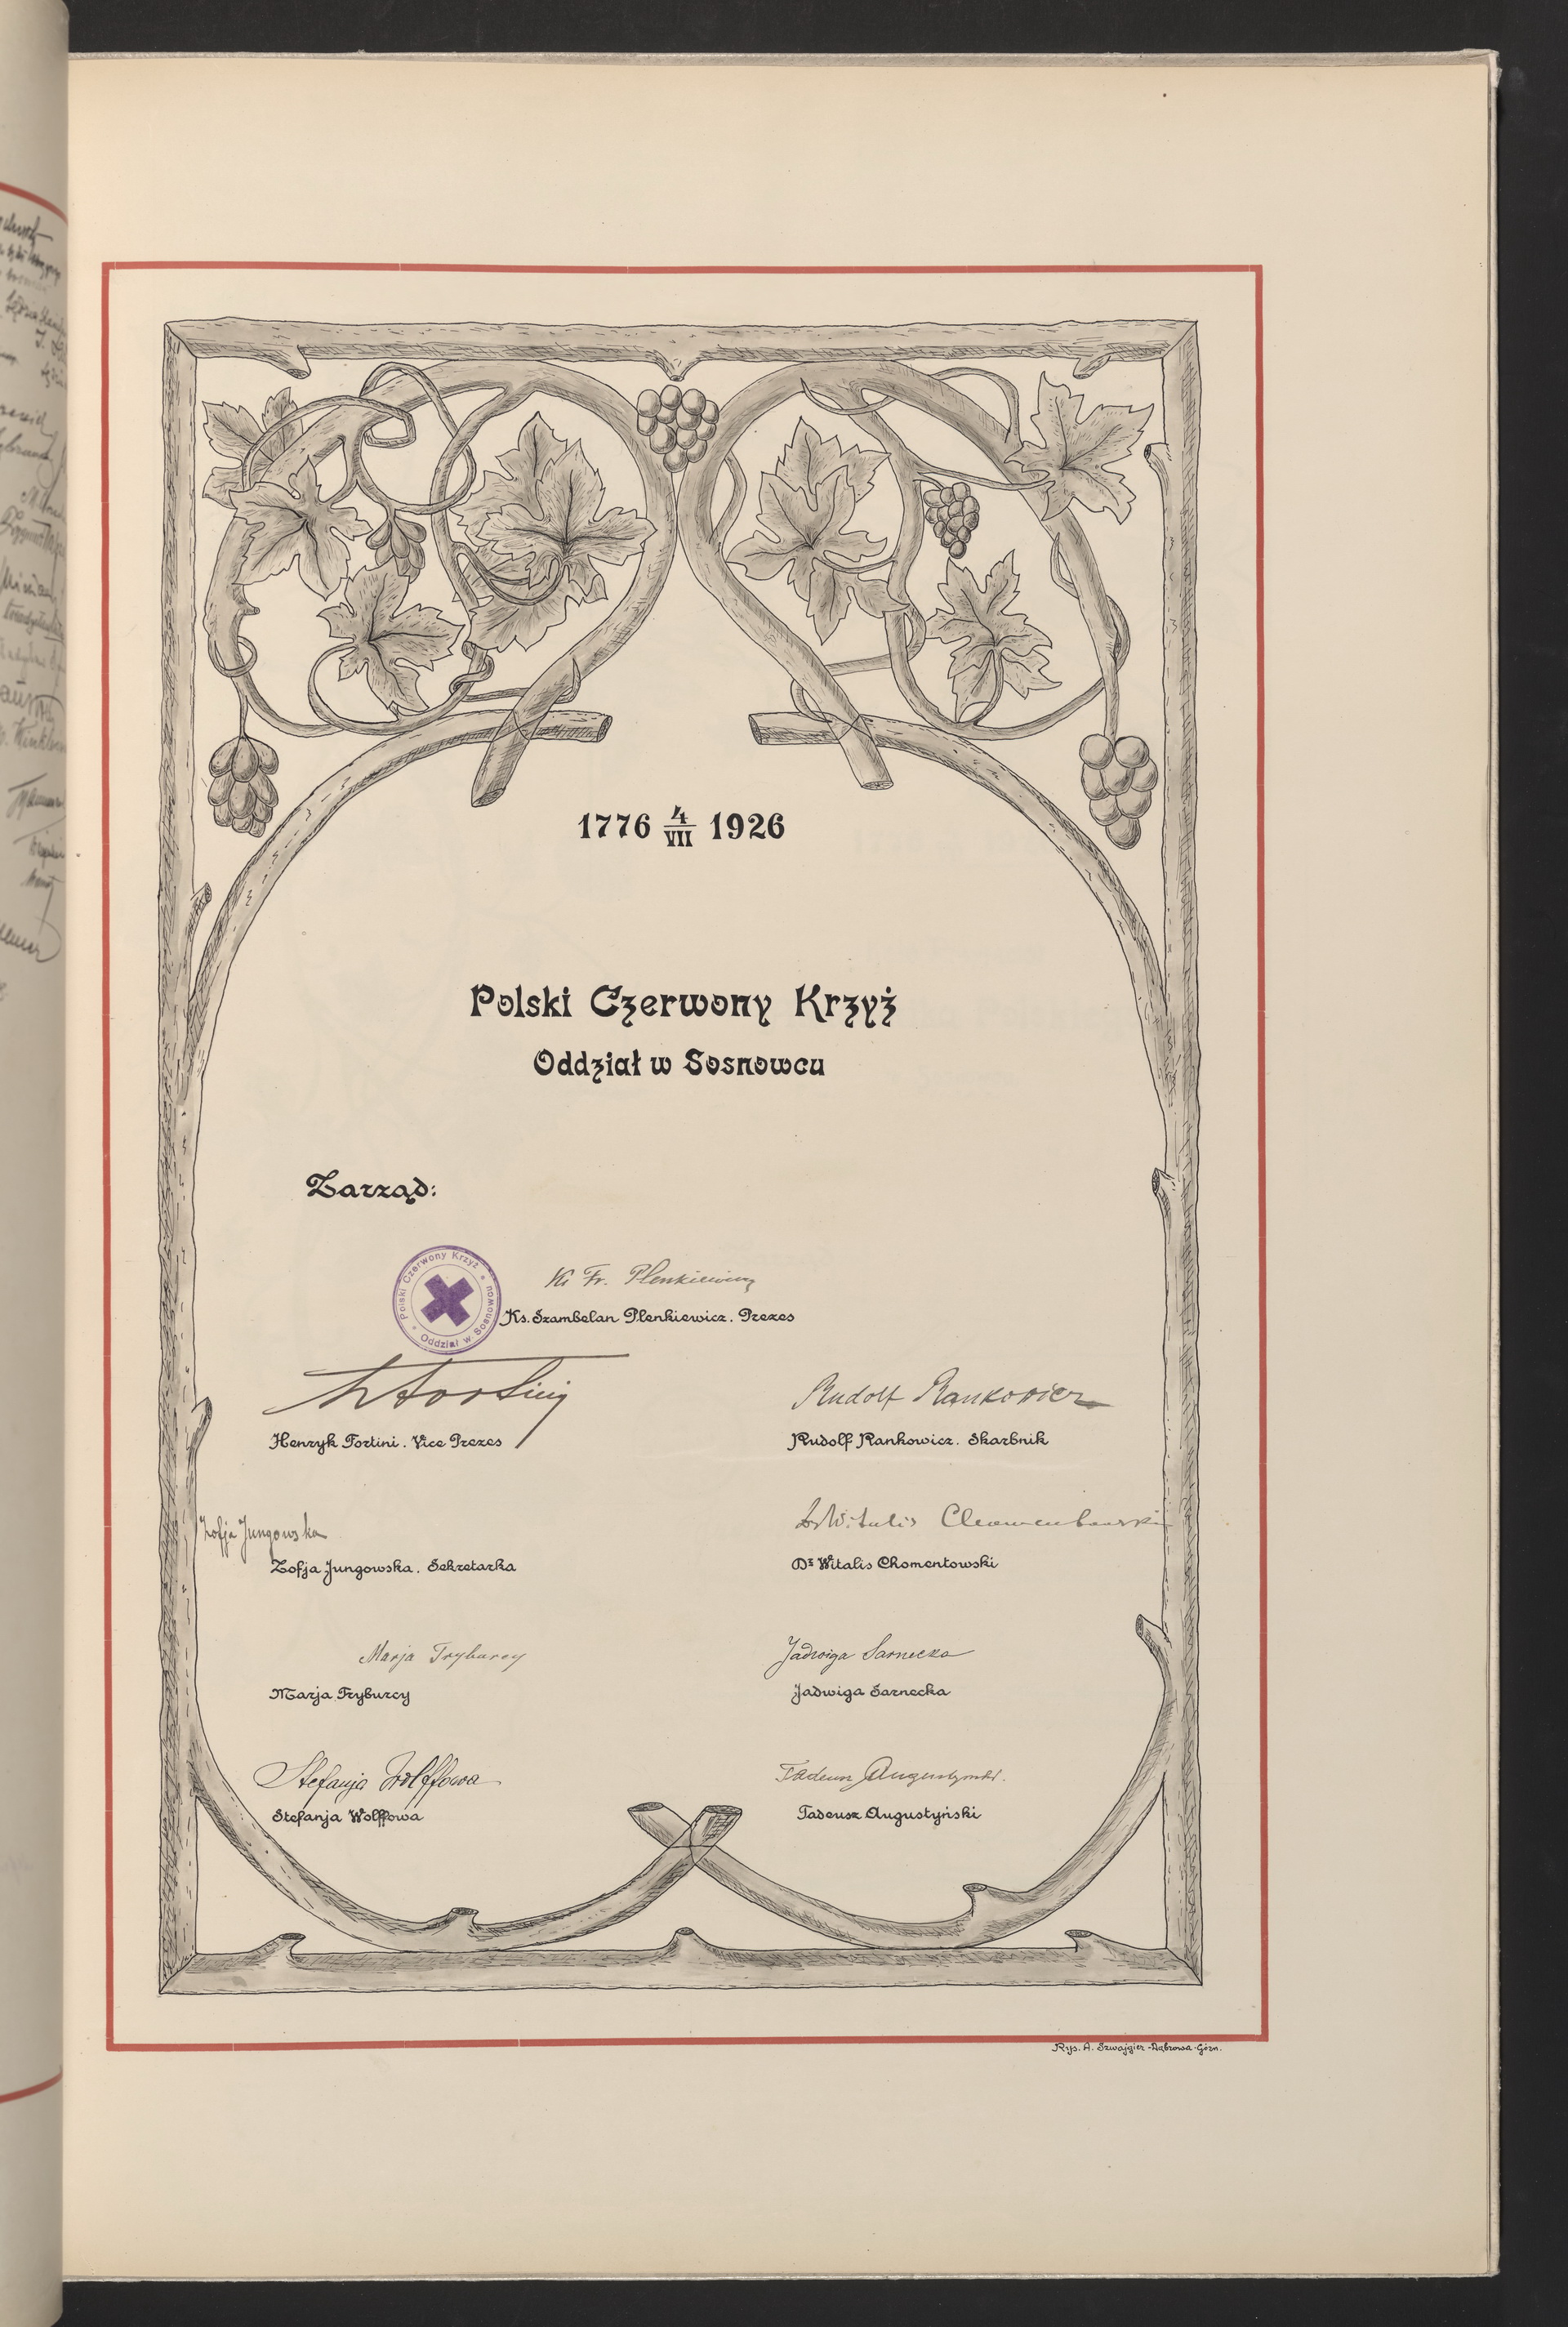 1776 4/VII 1926
Polski Czerwony Krzyż
Oddział w Sosnowcu
Zarząd:
Polski Czerwony Krzyż * Oddział w Sosnowcu *
Ks Fr. Plenkiewicz
Ks. Szambelan Plenkiewicz. Prezes
HFortini
Henryk Fortini. Vice Prezes
Rudolf Rankowicz
Rudolf Rankowicz. Skarbnik
Zofja Jungowska
Zofja Jungowska. Sekretarka
Dr Witalis Chomentowski
Dr Witalis Chomentowski
Marja Tryburcy
Marja Tryburcy
Jadwiga Sarnecka
Jadwiga Sarnecka
Stefanja Wolffowa
Stefanja Wolffowa
Tadeusz Augustyński.
Tadeusz Augustyński
Rys. A. Szwajgier - Dąbrowa - Górn.